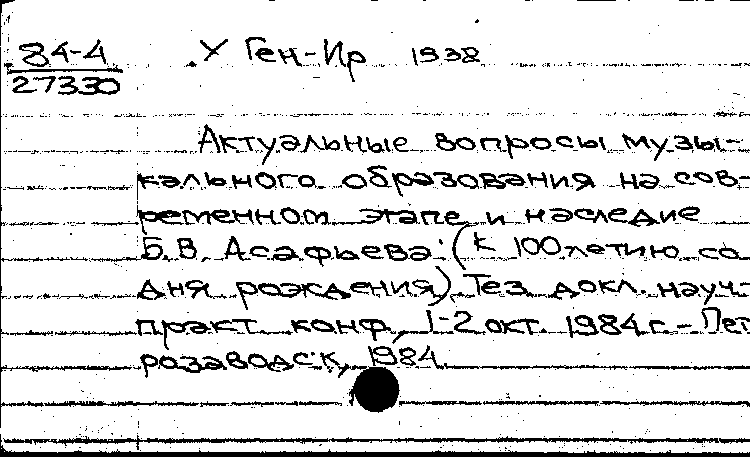 84-4
27330
У Ген-Ир 1938
Актуальные вопросы музы-
кального образования на сов-
ременном этапе и наследие
Б.В. Асафьева: (к 100летию со
дня рождения). Тез. докл. науч.-
практ. конф., 1-2 окт. 1984 г. - Пет
розаводск, 1984.